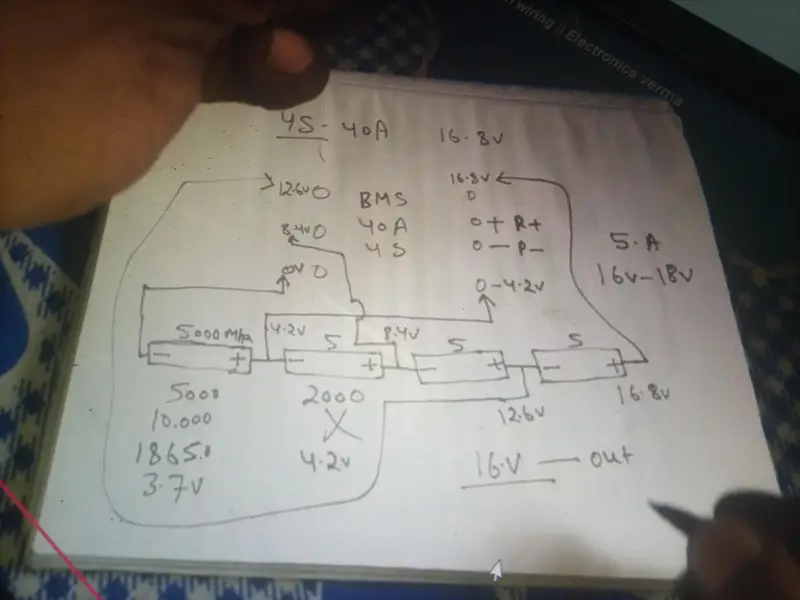 wiring || Electronics verma
4S - 40A 16.8V
12.6V 0 BMS 16.8V
0
8.4V 0 40A 0 + R+
4S 0 - P-
5.A
16V-18V
0V 0 0-4.2V
5000Mha 4.2V 5 8.4V 5 5
- + - + - + - +
5000 2000 12.6V 16.8V
10.000 X
18650 4.2V 16.V — out
3.7V